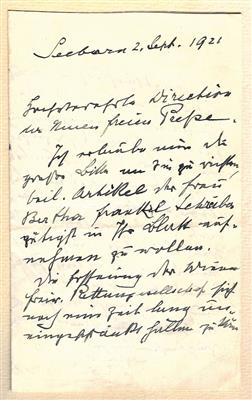 Seebarn 2. Sept. 1921
Hochverehrte Direction
der Neuen freien Presse.
Ich erlaube mir die
große Bitte an Sie zu richten
beil. Artikel der Frau
Bertha Frankl Schreiber
gütigst in Ihr Blatt auf-
nehmen zu wollen.
Die Hoffnung der Wiener
freiw. Rettungsgesellschaft sich
noch eine Zeit lang un-
eingeschränkt halten zu